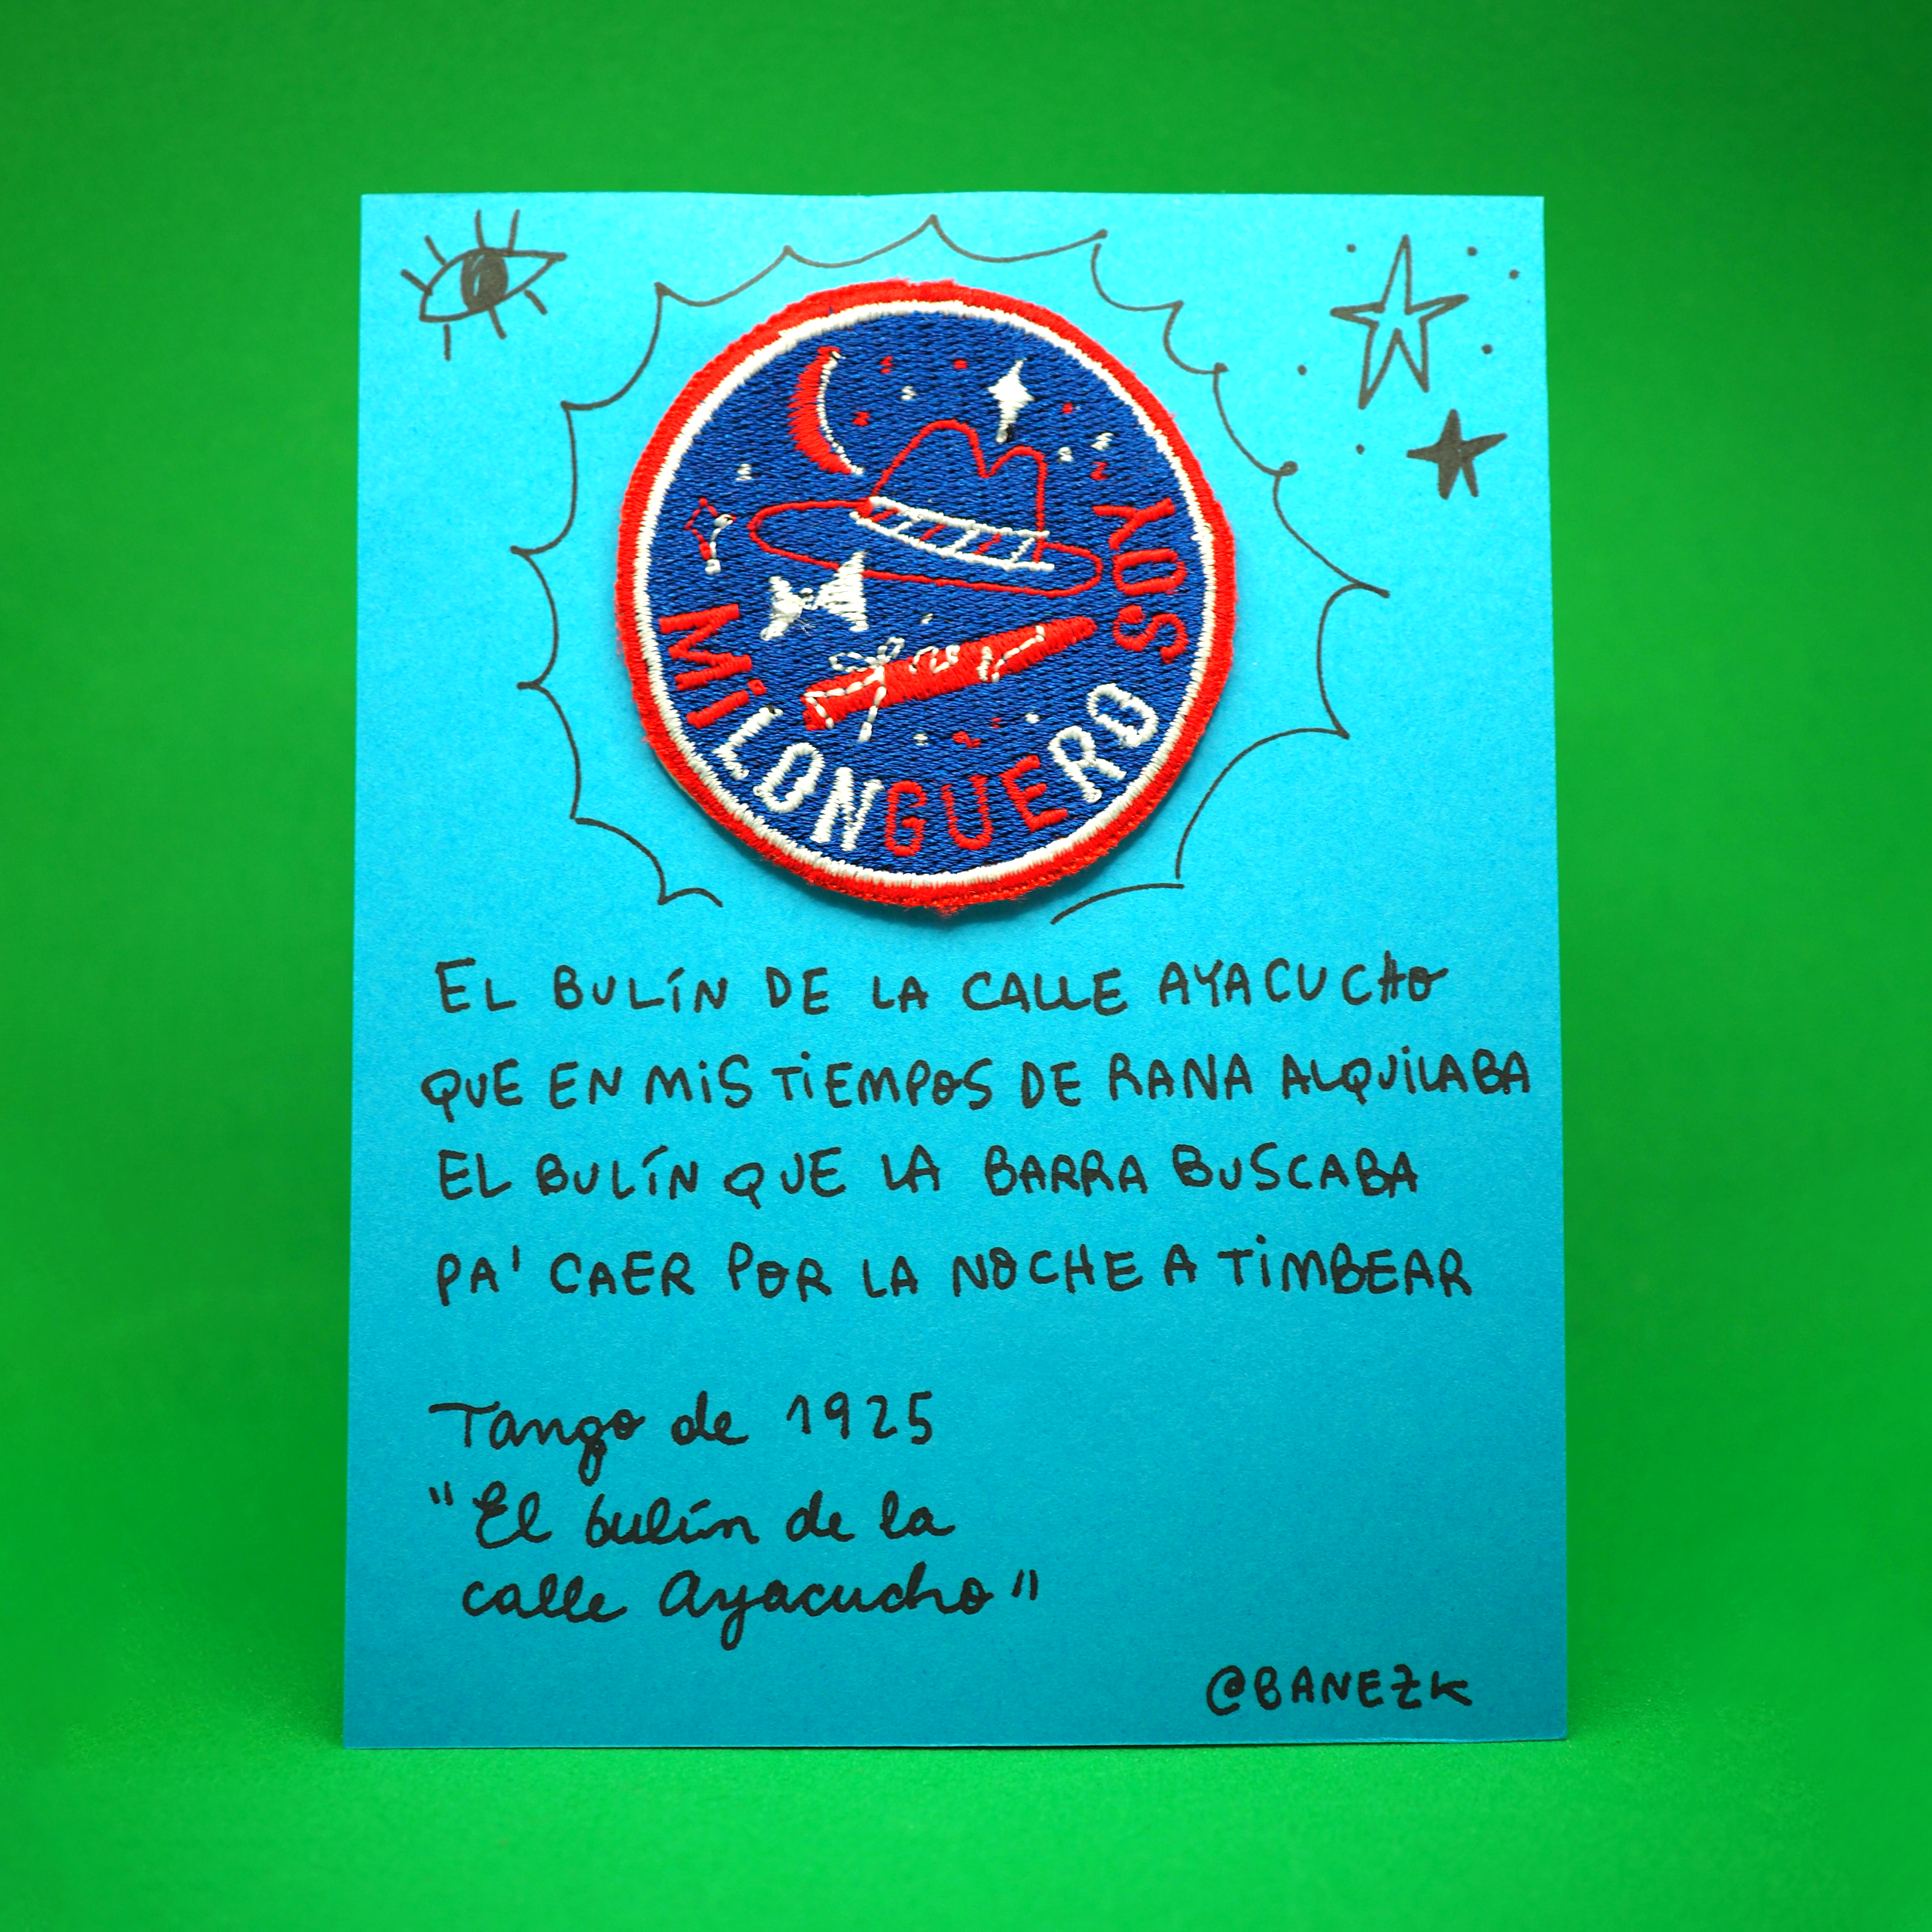 MiLONGUERO SOY
EL BULÍN DE LA CALLE AYACUCHO
QUE EN MiS TiEMPOS DE RANA ALQUiLABA
EL BULÍN QUE LA BARRA BUSCABA
PA' CAER POR LA NOCHE A TiMBEAR
Tango de 1925
"El bulín de la
calle Ayacucho"
@BANEZK